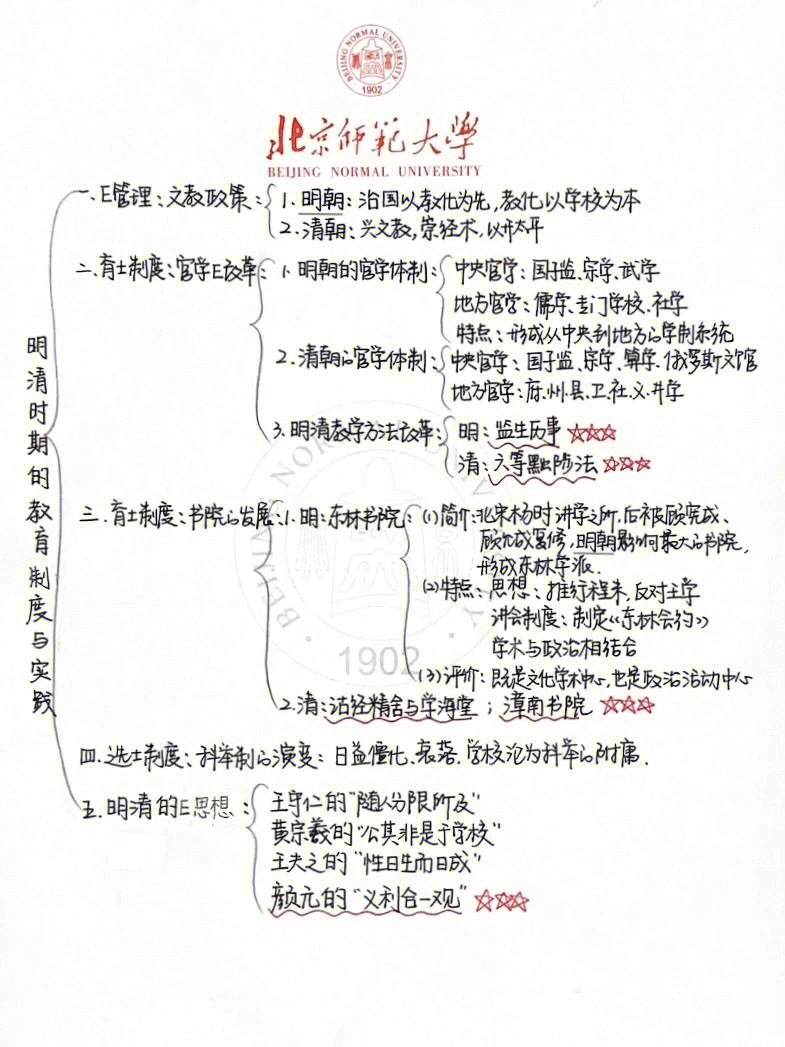 BEIJING NORMAL UNIVERSITY
1902
北京师范大学
BEIJING NORMAL UNIVERSITY
明清时期的教育制度与实践
一、E管理:文教政策:
1、明朝:治国以教化为先,教化以学校为本
2.清朝:兴文教,崇经术,以开太平
二、育士制度:官学E改革:
1、明朝的官学体制:
中央官学:国子监、宗学、武学
地方官学:儒学、专门学校、社学
特点:形成从中央到地方的学制系统
2.清朝的官学体制:
中央官学:国子监、宗学、算学、俄罗斯文馆
地方官学:府、州、县、卫、社、义、井学
3.明清教学方法改革:
明:监生历事 ☆☆☆
清:六等黜陟法 ☆☆☆
三、育士制度:书院的发展:
1、明:东林书院:
(1)简介:北宋杨时讲学之所,后被顾宪成、
顾允成复修,明朝影响最大的书院,
形成东林学派.
(2)特点:思想:推行程朱,反对王学
讲会制度:制定《东林会约》
学术与政治相结合
(3)评价:既是文化学术中心,也是政治活动中心
2.清:诂经精舍与学海堂;漳南书院 ☆☆☆
四、选士制度:科举制的演变:日益僵化、衰落,学校沦为科举的附庸.
五.明清的E思想:
王守仁的"随人分限所及"
黄宗羲的"公其非是于学校"
王夫之的"性日生而日成"
颜元的"义利合一观" ☆☆☆
BEIJING NORMAL UNIVERSITY
1902